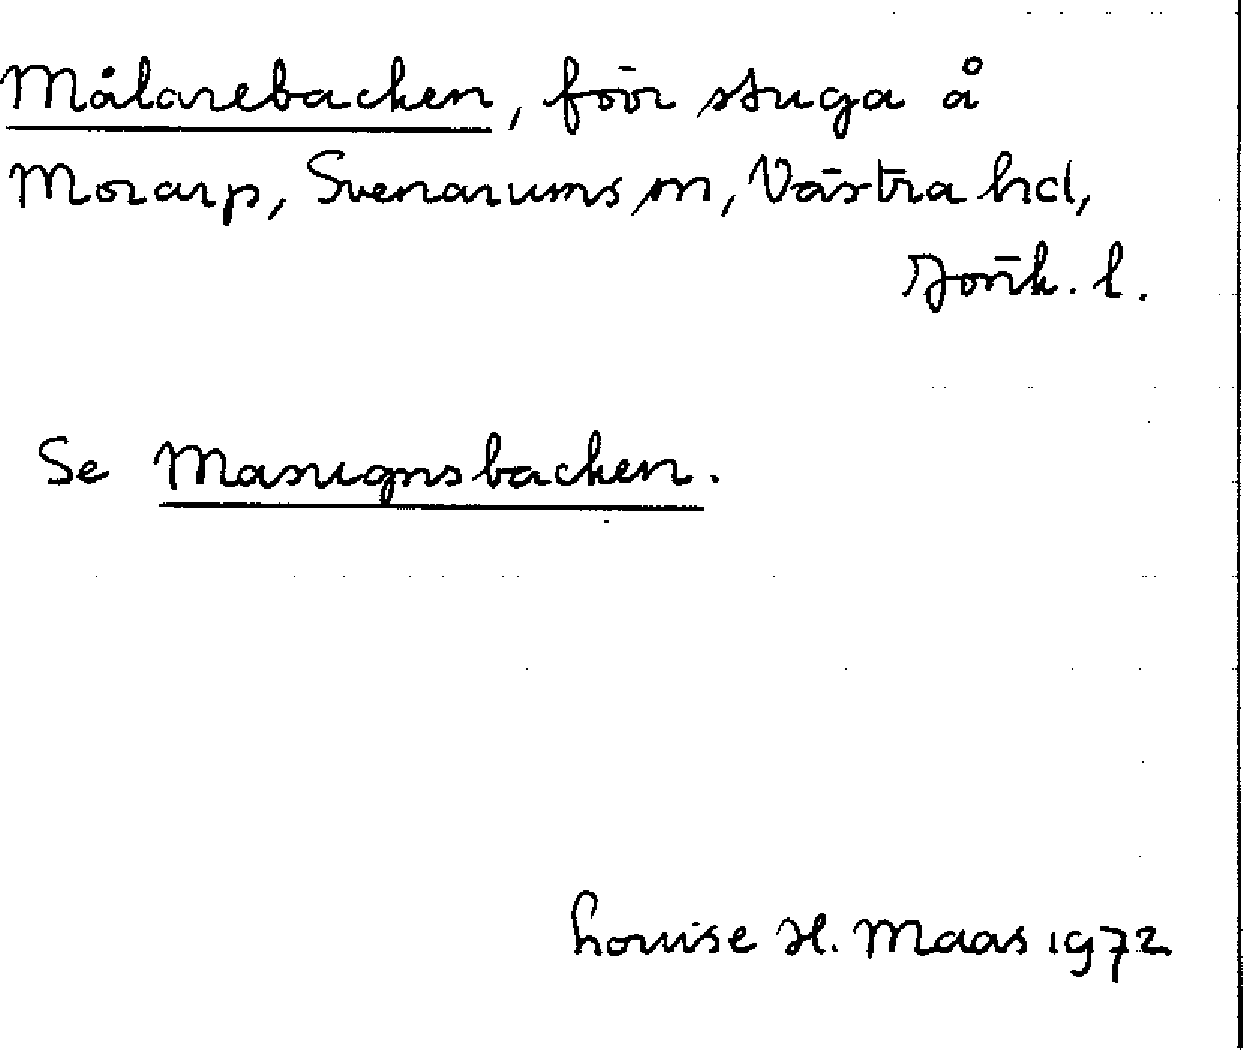 Målarebacken, förr stuga å
Morarp, Svenarums sn, Västra hd,
Jönk. l.
Se Masugnsbacken.
Louise H. Maas 1972